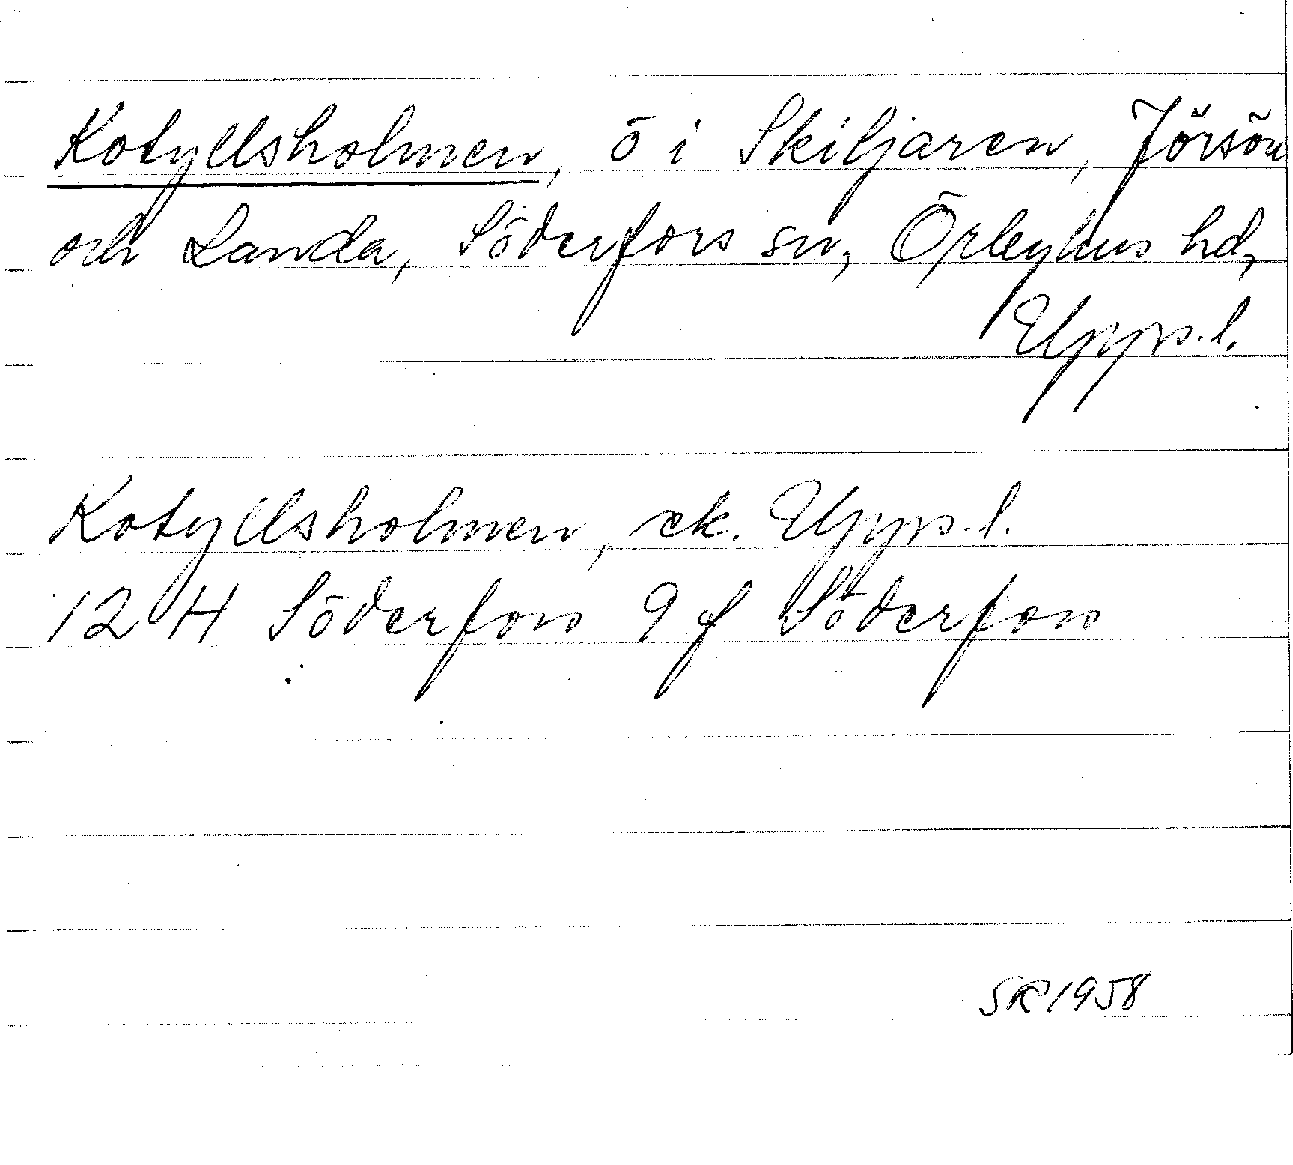 Kotyllsholmen, ö i Skiljaren, Jörsön
och Landa, Söderfors sn, Örbyhus hd,
Upps. l.
Kotyllsholmen, ek. Upps. l.
12 H Söderfors 9 f Söderfors
SR 1958